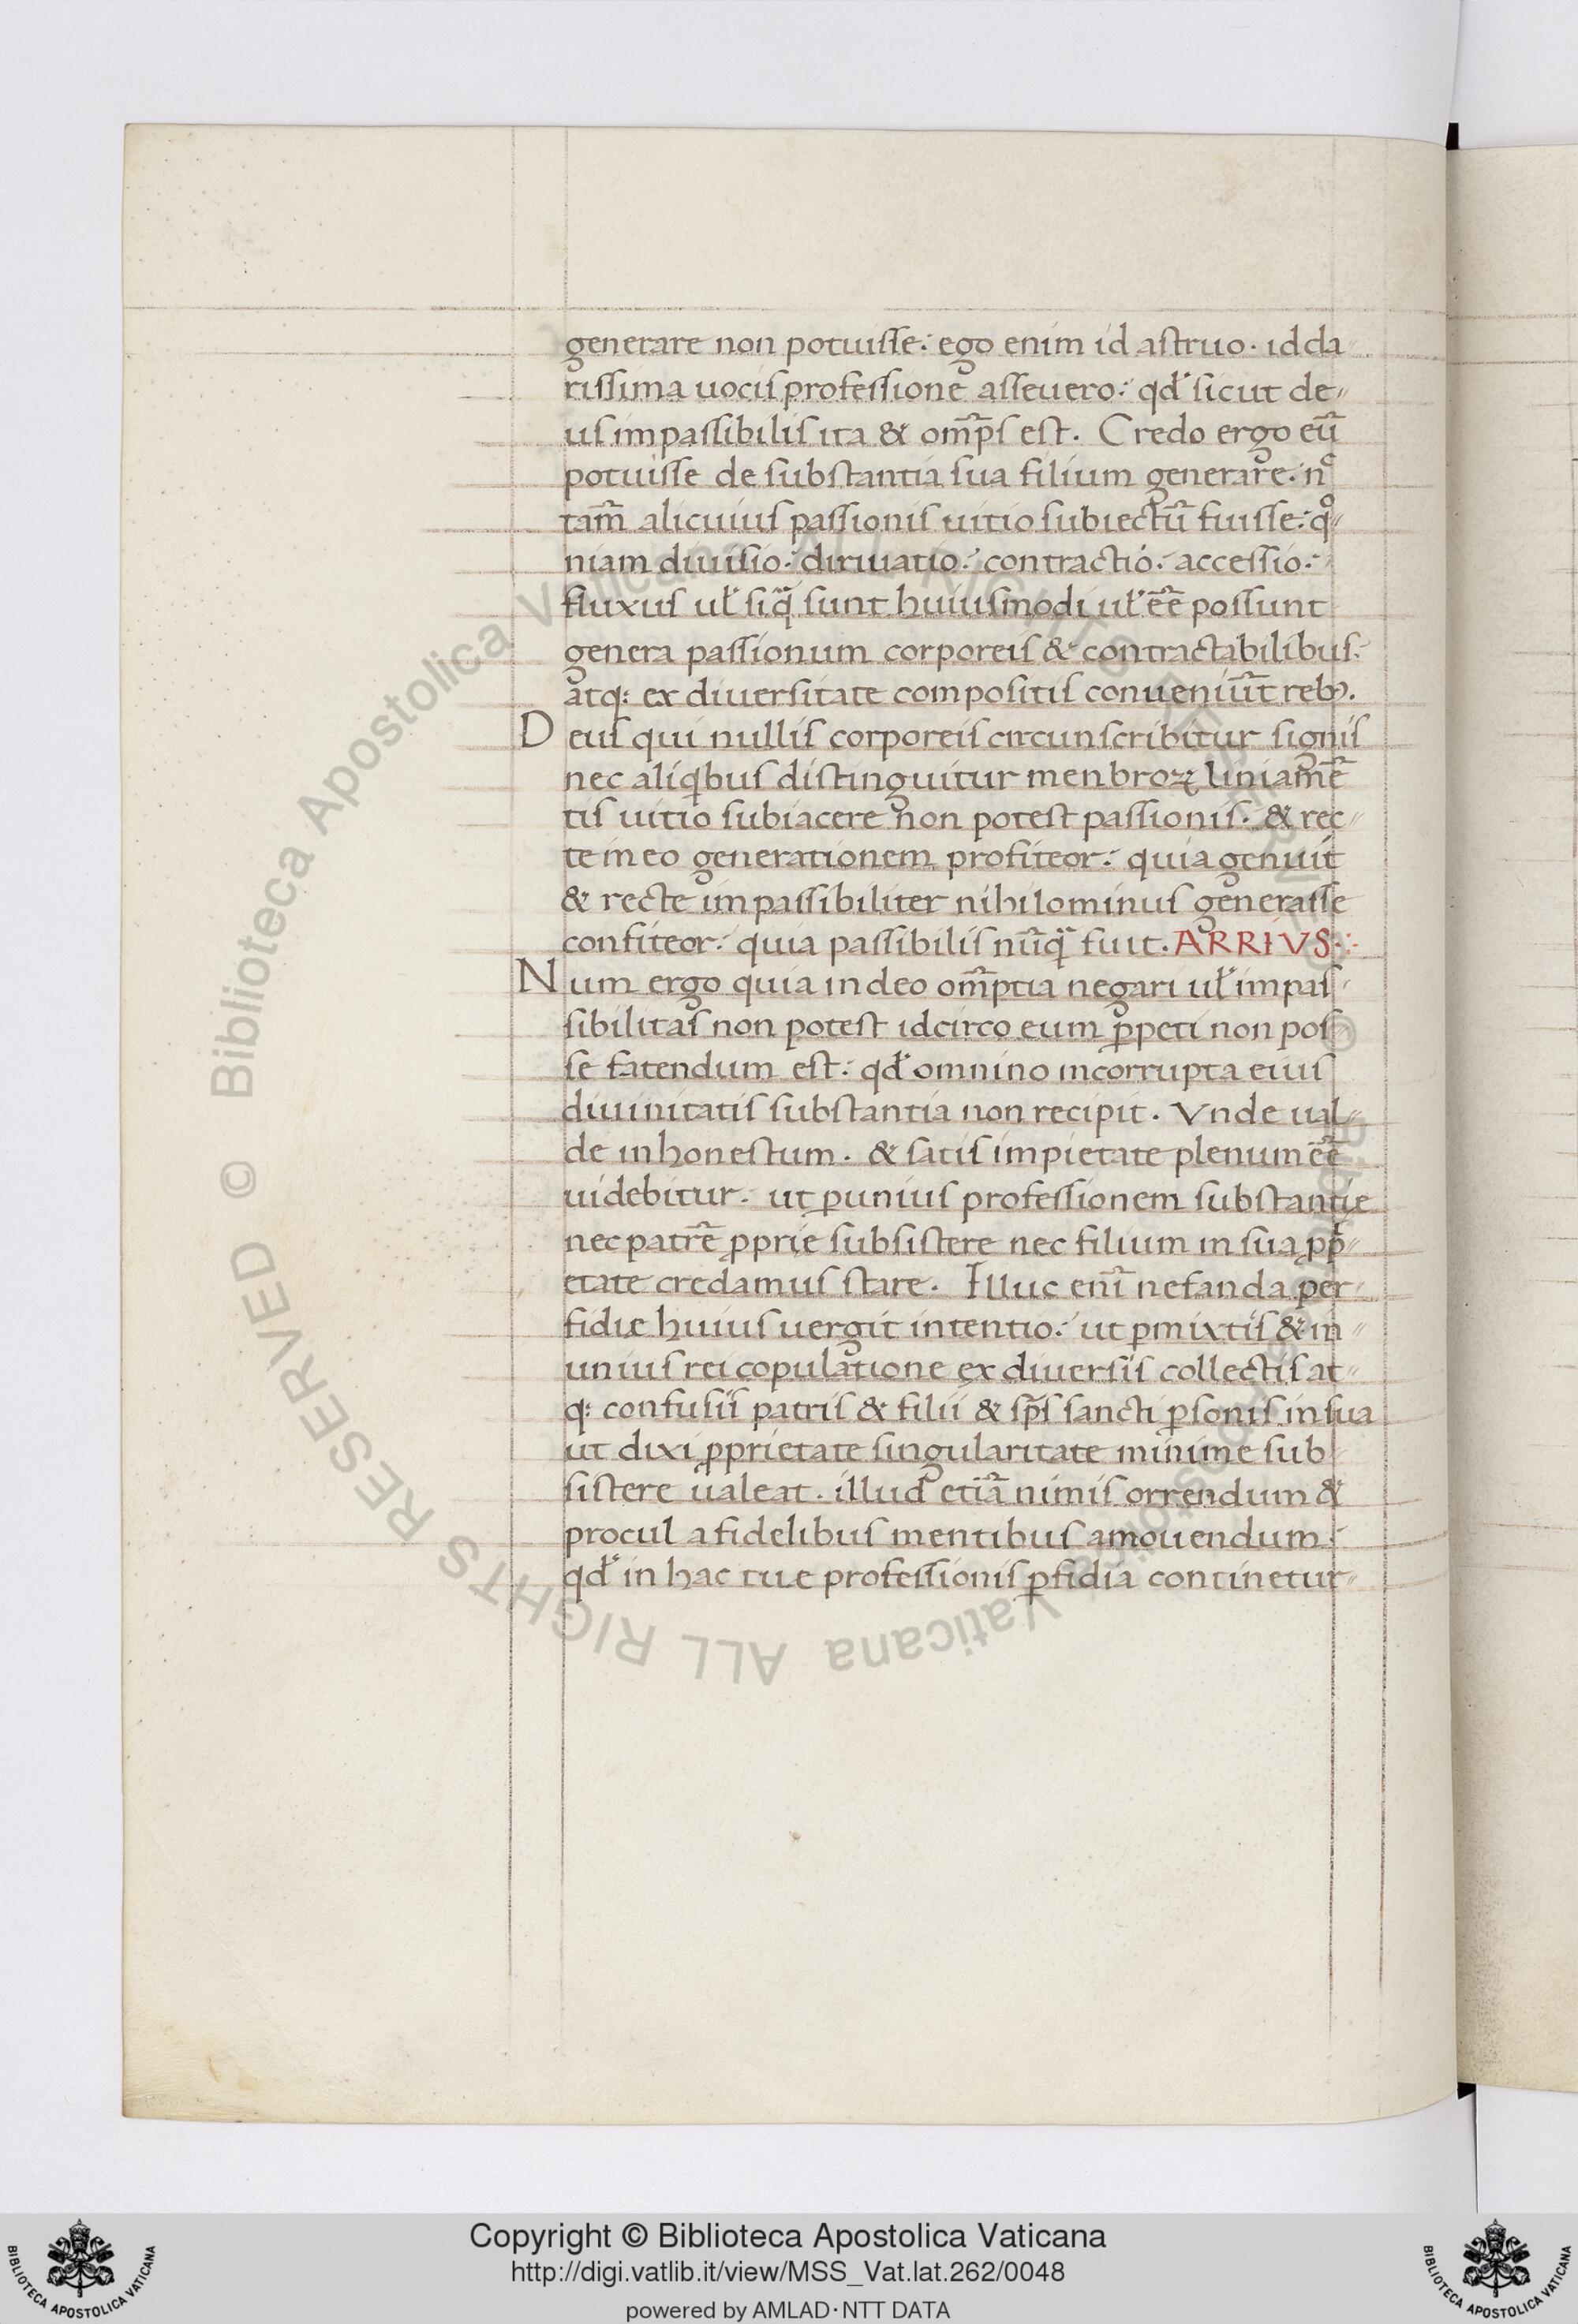 generare non potuisse: ego enim id astruo. id cla
rissima uocis professione asseuero: qđ sicut de
us impassibilis ita & om̅p̅s est. Credo ergo eu̅
potuisse de substantia sua filium generare. nͨ
tam̅ alicuius passionis uitio subiectu̅ fuisse: qͦ
niam diuisio: diriuatio: contractio: accessio:
fluxus ul̕ siqͣ sunt huiusmodi ul̕ e̅e̅ possunt
genera passionum corporeis & contractabilibus.
atq; ex diuersitate compositis conueniu̅t rebꝫ.
Deus qui nullis corporeis circunscribitur signis
nec aliqͥbus distinguitur menbroꝝ liniame̅
tis uitio subiacere non potest passionis. & rec
te in eo generationem profiteor: quia genuit
& recte impassibiliter nihilominus generasse
confiteor: quia passibilis nu̅qͣ fuit. ARRIVS:
Num ergo quia in deo om̅ptia negari ul̕ impas
sibilitas non potest idcirco eum ꝑpeti non pos
se fatendum est: qđ omnino incorrupta eius
diuinitatis substantia non recipit. Vnde ual
de inhonestum. & satis impietate plenum e̅e̅
uidebitur. ut ꝑ unius professionem substantię
nec patre̅ ꝓprie subsistere nec filium in sua ꝓpͥ
etate credamus stare. Illuc eni̅ nefanda per
fidię huius uergit intentio: ut ꝑmixtis & in
unius rei copulatione ex diuersis collectis at
q; confusis patris & filii & sp̅s sancti ꝑsonis in sua
ut dixi ꝓprietate singularitate minime sub
sistere ualeat. illud etia̅ nimis orrendum &
procul a fidelibus mentibus amouendum:
qđ in hac tue professionis ꝑfidia continetur
Biblioteca Apostolica Vaticana
© Biblioteca Apostolica Vaticana ALL RIGHTS RESERVED
Copyright © Biblioteca Apostolica Vaticana
http://digi.vatlib.it/view/MSS_Vat.lat.262/0048
powered by AMLAD·NTT DATA
BIBLIOTECA APOSTOLICA VATICANA
BIBLIOTECA APOSTOLICA VATICANA